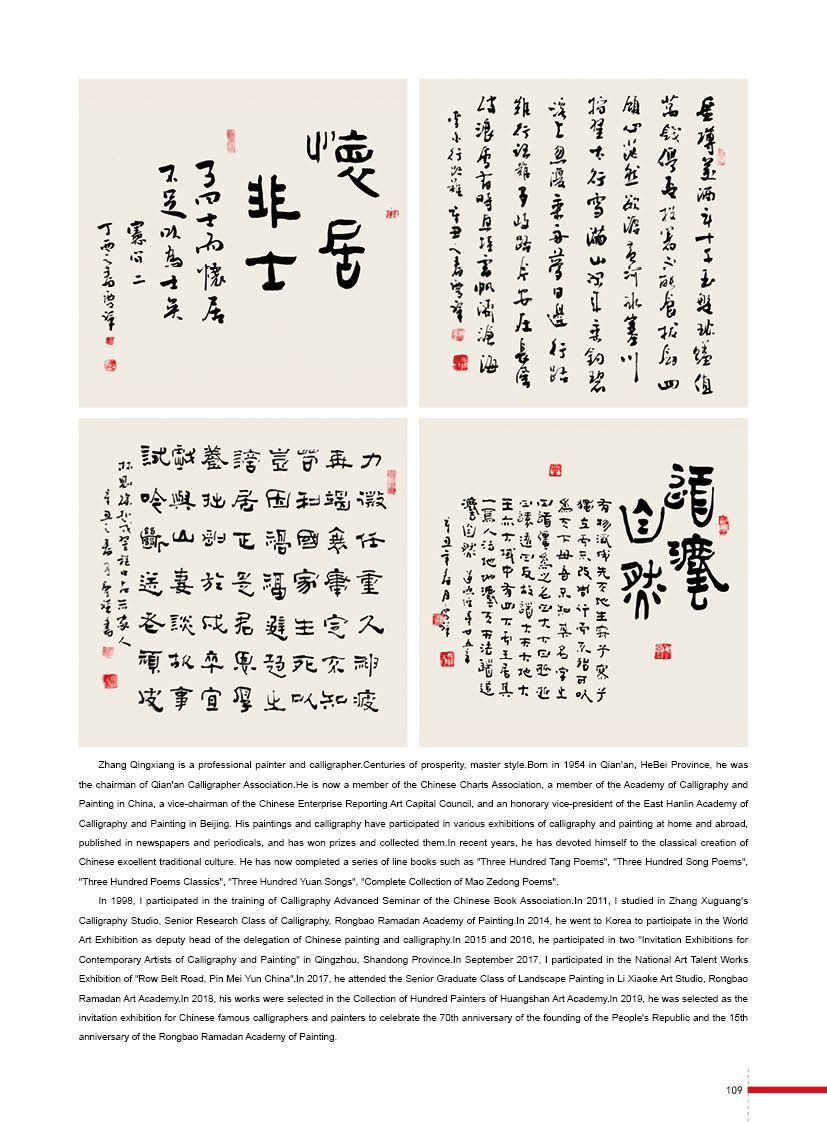 懷居
非士
子曰士而懷居
不足以為士矣
憲問二
丁酉之春慶祥
金樽美酒斗十千玉盤珍饈值
萬錢停杯投箸不能食拔劍四
顧心茫然欲渡黃河冰塞川
將登太行雪滿山閑來垂釣碧
溪上忽復乘舟夢日邊行路
難行路難多歧路今安在長風
破浪會有時直掛雲帆濟滄海
李白行路難 辛丑之春慶祥
力微任重久神疲
再竭衰庸定不
苟利國家生死以
豈因禍福避趨之
謫居正是君恩厚
養拙剛於戍卒宜
戲與山妻談故事
試吟斷送老頭皮
林則徐赴戍登程口占示家人
辛丑之春月慶祥書
道灋
自然
有物混成先天地生寂兮寥兮
獨立而不改周行而不殆可以
為天下母吾不知其名字之
曰道強為之名曰大大曰逝逝
曰遠遠曰反故道大天大地大
王亦大域中有四大而王居其
一焉人法地地灋天天法道道
灋自然 道德經第廿五章
辛丑年春月慶祥
Zhang Qingxiang is a professional painter and calligrapher.Centuries of prosperity, master style.Born in 1954 in Qian'an, HeBei Province, he was
the chairman of Qian'an Calligrapher Association.He is now a member of the Chinese Charts Association, a member of the Academy of Calligraphy and
Painting in China, a vice-chairman of the Chinese Enterprise Reporting Art Capital Council, and an honorary vice-president of the East Hanlin Academy of
Calligraphy and Painting in Beijing. His paintings and calligraphy have participated in various exhibitions of calligraphy and painting at home and abroad,
published in newspapers and periodicals, and has won prizes and collected them.In recent years, he has devoted himself to the classical creation of
Chinese excellent traditional culture. He has now completed a series of line books such as "Three Hundred Tang Poems", "Three Hundred Song Poems",
"Three Hundred Poems Classics", "Three Hundred Yuan Songs", "Complete Collection of Mao Zedong Poems".
In 1998, I participated in the training of Calligraphy Advanced Seminar of the Chinese Book Association.In 2011, I studied in Zhang Xuguang's
Calligraphy Studio, Senior Research Class of Calligraphy, Rongbao Ramadan Academy of Painting.In 2014, he went to Korea to participate in the World
Art Exhibition as deputy head of the delegation of Chinese painting and calligraphy.In 2015 and 2016, he participated in two "Invitation Exhibitions for
Contemporary Artists of Calligraphy and Painting" in Qingzhou, Shandong Province.In September 2017, I participated in the National Art Talent Works
Exhibition of "Row Belt Road, Pin Mei Yun China".In 2017, he attended the Senior Graduate Class of Landscape Painting in Li Xiaoke Art Studio, Rongbao
Ramadan Art Academy.In 2018, his works were selected in the Collection of Hundred Painters of Huangshan Art Academy.In 2019, he was selected as the
invitation exhibition for Chinese famous calligraphers and painters to celebrate the 70th anniversary of the founding of the People's Republic and the 15th
anniversary of the Rongbao Ramadan Academy of Painting.
109